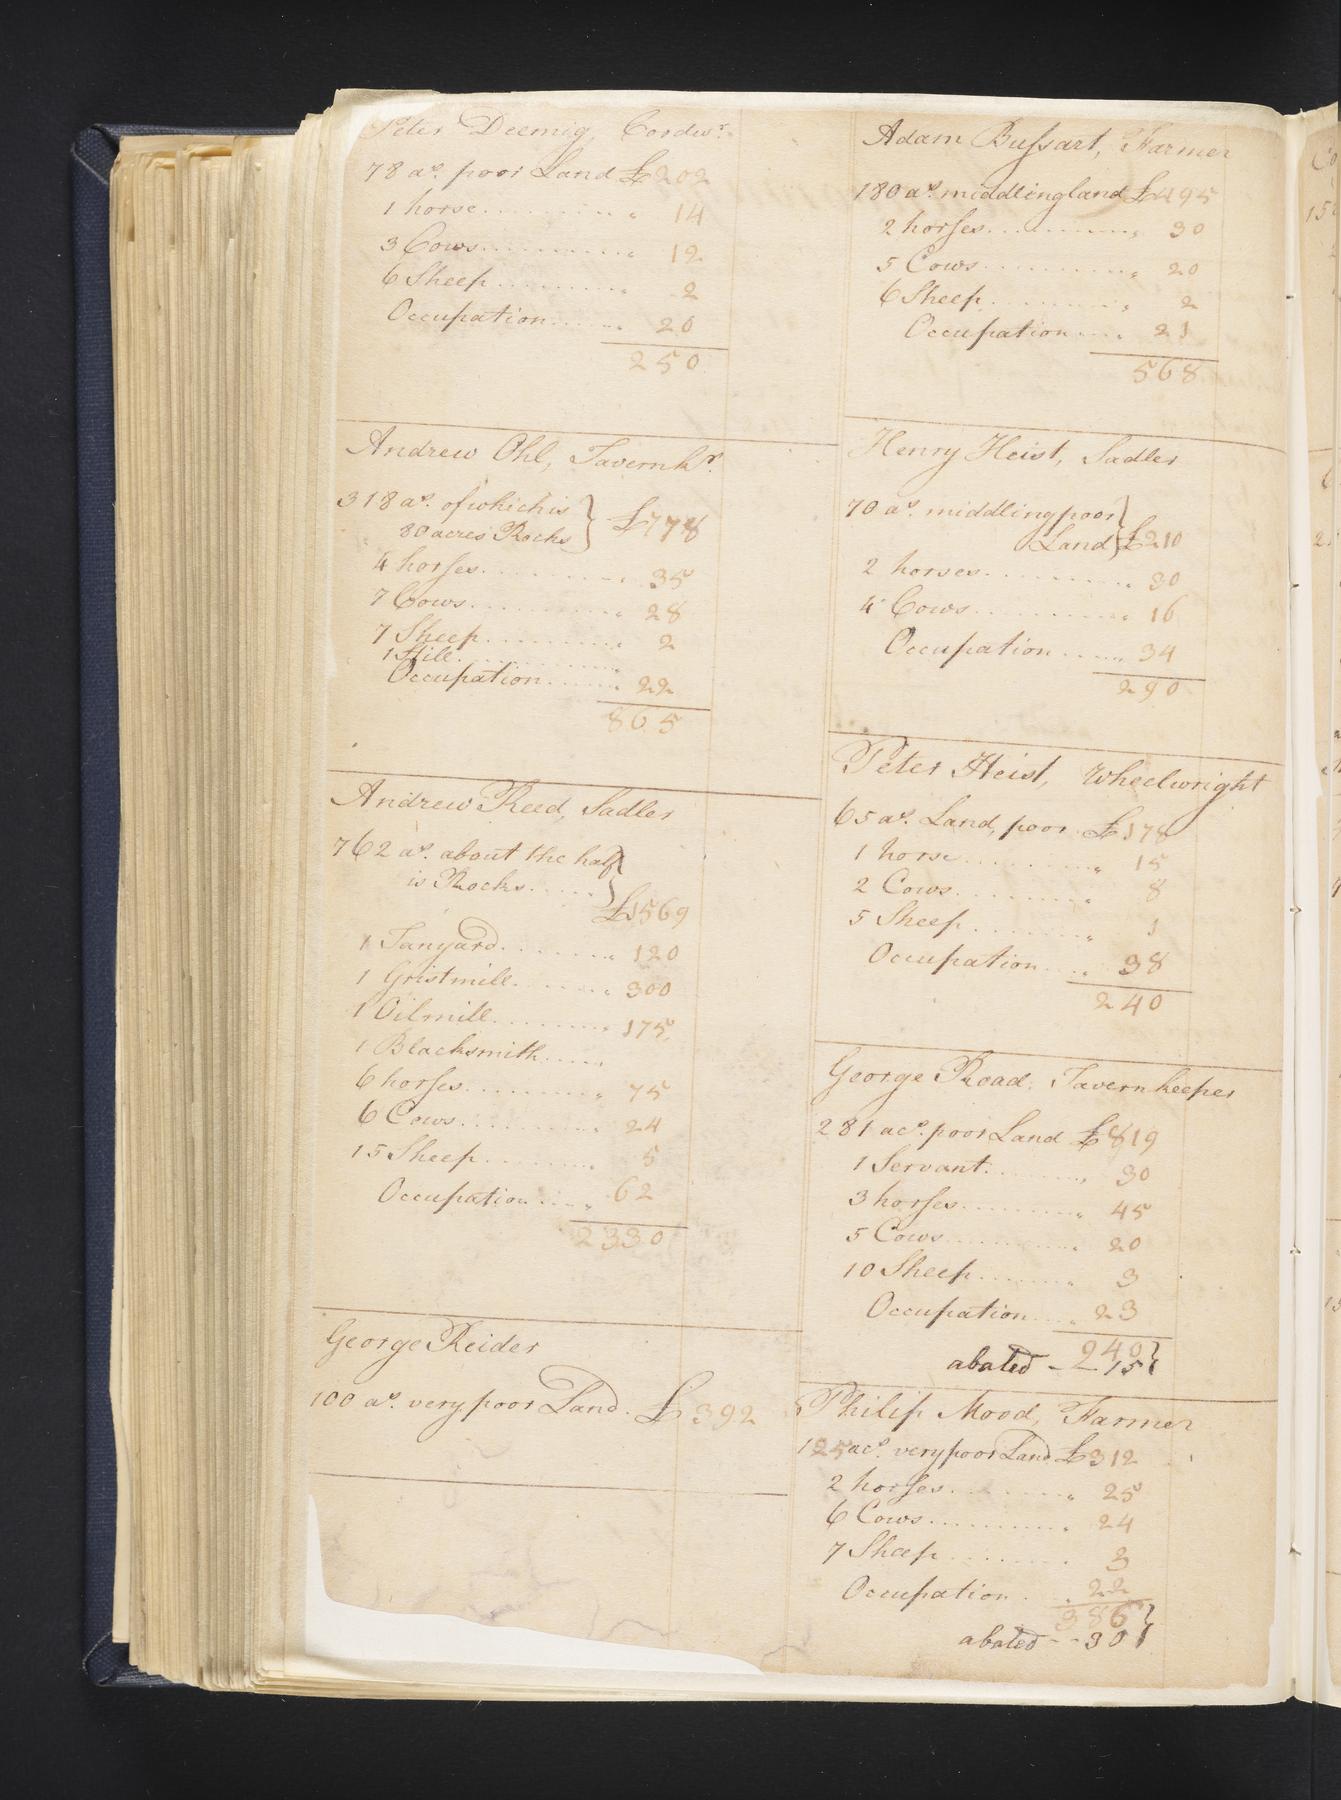 Peter Deemig, Cordwr.
78 as. poor Land £202
1 horse.......... " 14
3 Cows.......... " 12
6 Sheep.......... " 2
Occupation...... " 20
250
Andrew Ohl, Tavernkr.
318 as. of which is } £778
80 acres Rocks
4 horses.......... " 35
7 Cows.......... " 28
7 Sheep.......... " 2
1 Still..........
Occupation...... " 22
865
Andrew Reed, Sadler
762 as. about the half
is Rocks..... }
£1569
1 Tanyard......... " 120
1 Gristmill........ " 300
1 Oilmill......... " 175
1 Blacksmith.....
6 horses......... " 75
6 Cows......... " 24
15 Sheep......... " 5
Occupation..... " 62
2330
George Reider
100 as. very poor Land. £392
Adam Bussart, Farmer
180 as. middling land £495
2 horses.......... " 30
5 Cows.......... " 20
6 Sheep.......... " 2
Occupation..... " 21
568
Henry Heist, Sadler
70 as. middling poor }
Land £210
2 horses.......... " 30
4 Cows.......... " 16
Occupation..... " 34
290
Peter Heist, Wheelwright
65 as. Land, poor £178
1 horse.......... " 15
2 Cows.......... " 8
5 Sheep.......... " 1
Occupation.... " 38
240
George Road. Tavernkeeper
281 acs. poor Land £819
1 Servant........ " 30
3 horses......... " 45
5 Cows......... " 20
10 Sheep........ " 3
Occupation.... " 23
940 }
abated - 15
Philip Mood, Farmer
125 acs. very poor Land £312
2 horses......... " 25
6 Cows......... " 24
7 Sheep......... " 3
Occupation.... " 22
386 }
abated -- 30